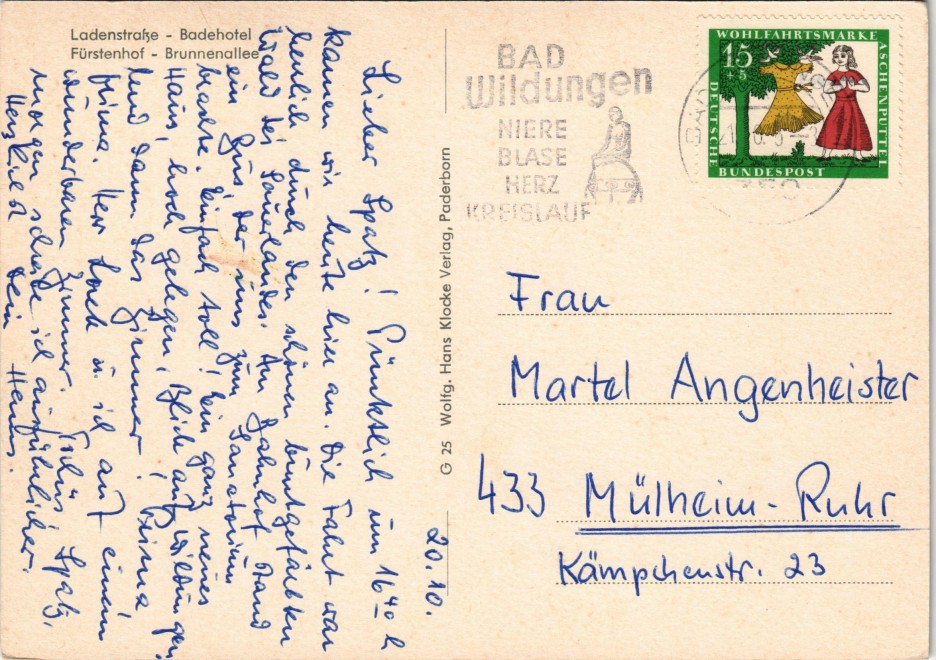 Ladenstraße - Badehotel
Fürstenhof - Brunnenallee
20.10.
Lieber Spatz! Pünktlich um 16⁴⁰ h
kamen wir heute hier an. Die Fahrt war
herrlich durch den schönen buntgefärbten
Wald des Sauerlandes. Am Bahnhof stand
ein Bus, der uns zum Sanatorium
brachte. Einfach toll! Ein ganz neues
Haus, hoch gelegen, Blick auf Wildungen.
Und dann das Zimmer! Prima
prima. Herr u. ich auf einem
wunderbaren Zimmer. Tschüs Spatz,
morgen schreibe ich ausführlicher.
Herzlichst Dein Hans.
G 25 Wolfg. Hans Klocke Verlag, Paderborn
BAD
Wildungen
NIERE
BLASE
HERZ
KREISLAUF
WOHLFAHRTSMARKE
ASCHENPUTTEL
15
+5
DEUTSCHE
BUNDESPOST
Frau
Martel Angenheister
433 Mülheim-Ruhr
Kämpchenstr. 23